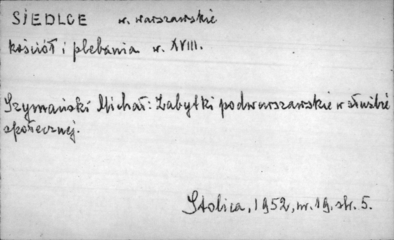 SIEDLCE w. warszawskie
kościół i plebania w. XVIII.
Szymański Michał: Zabytki podwarszawskie w służbie
społecznej.
Stolica, 1952, nr. 19. str. 5.